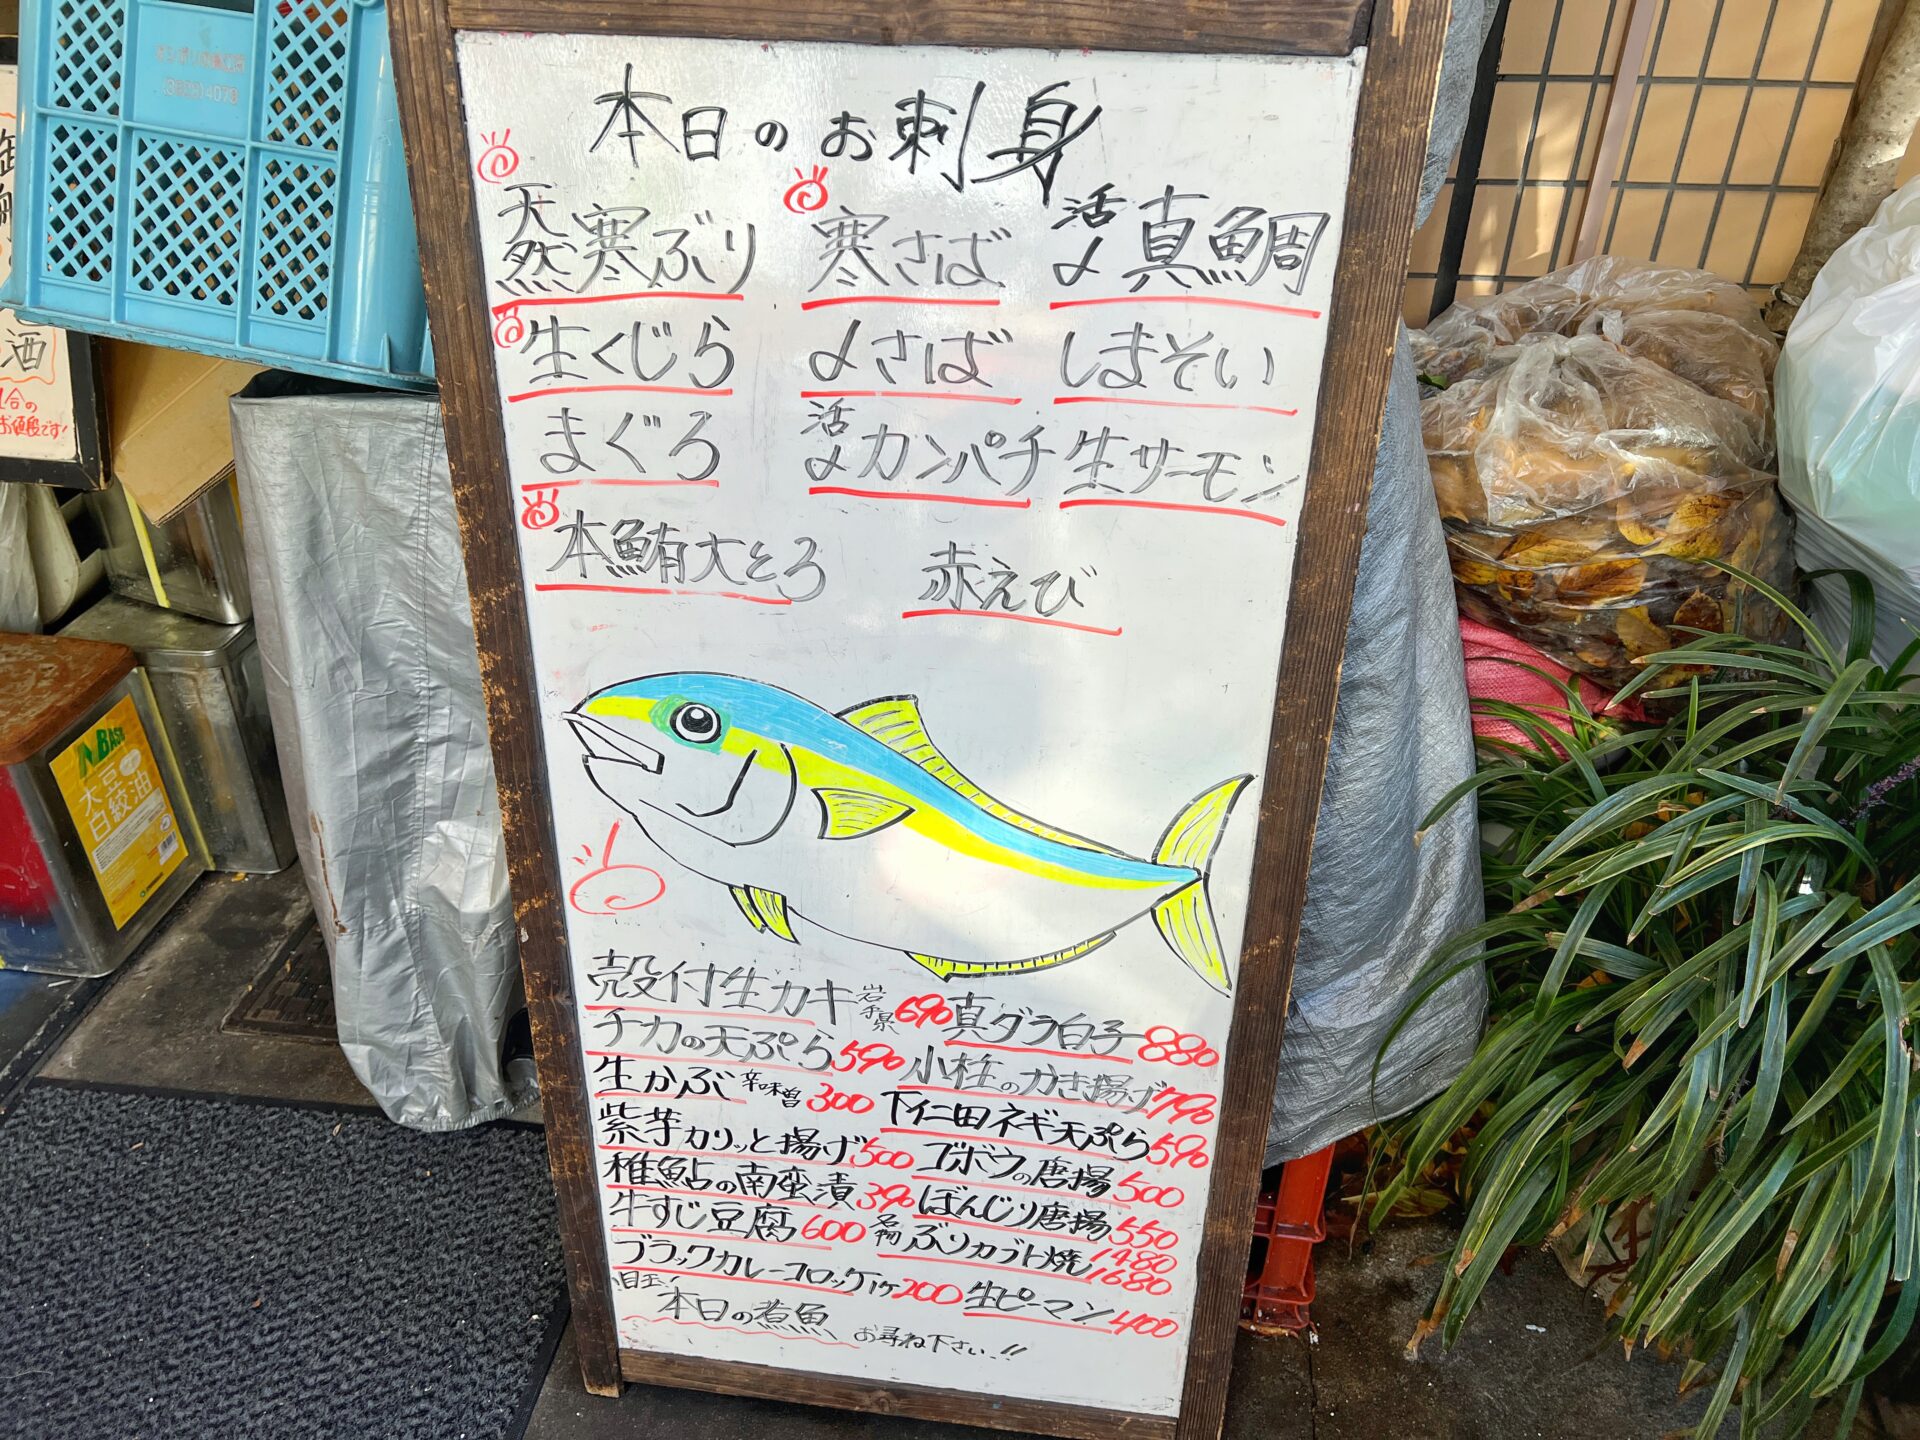 本日のお刺身
天然寒ぶり 寒さば 活〆真鯛
生くじら 〆さば しまそい
まぐろ 活〆カンパチ 生サーモン
本鮪大とろ 赤えび
殻付生カキ 岩手県 690 真ダラ白子 880
チカの天ぷら 590 小柱のかき揚げ 790
生かぶ 辛味噌 300 下仁田ネギ天ぷら 590
紫芋カリッと揚げ 500 ゴボウの唐揚 500
稚鮎の南蛮漬 390 ぼんじり唐揚 550
牛すじ豆腐 600 名物 ぶりカブト焼 1480 1680
ブラックカレーコロッケ 1ケ 200 生ピーマン 400
目玉!
本日の煮魚 お尋ね下さい!!
(3823)4078
酒
1合の
お値段です!
BASE
大豆
白絞油